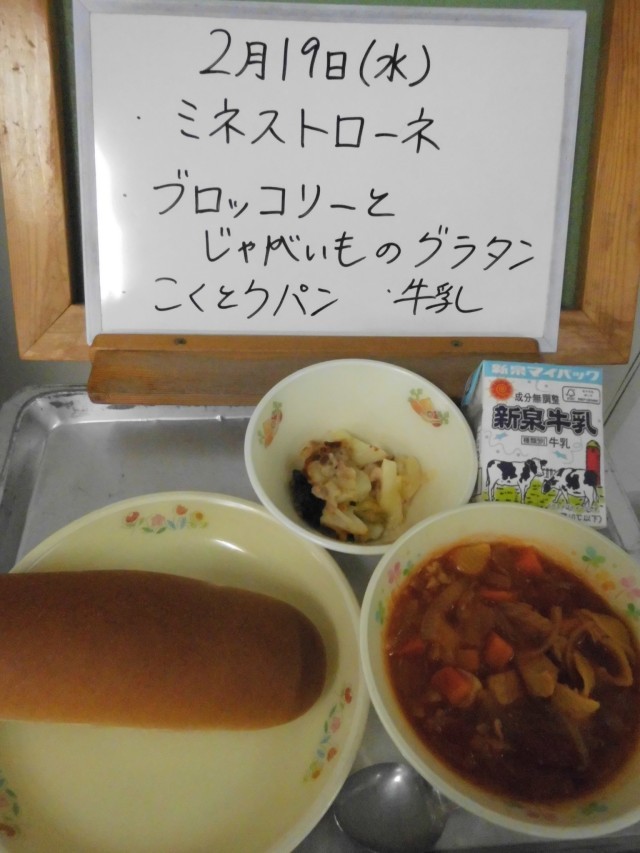 2月19日(水)
・ミネストローネ
・ブロッコリーと
じゃがいものグラタン
・こくとうパン ・牛乳
新泉マイパック
成分無調整
新泉牛乳
種類別 牛乳